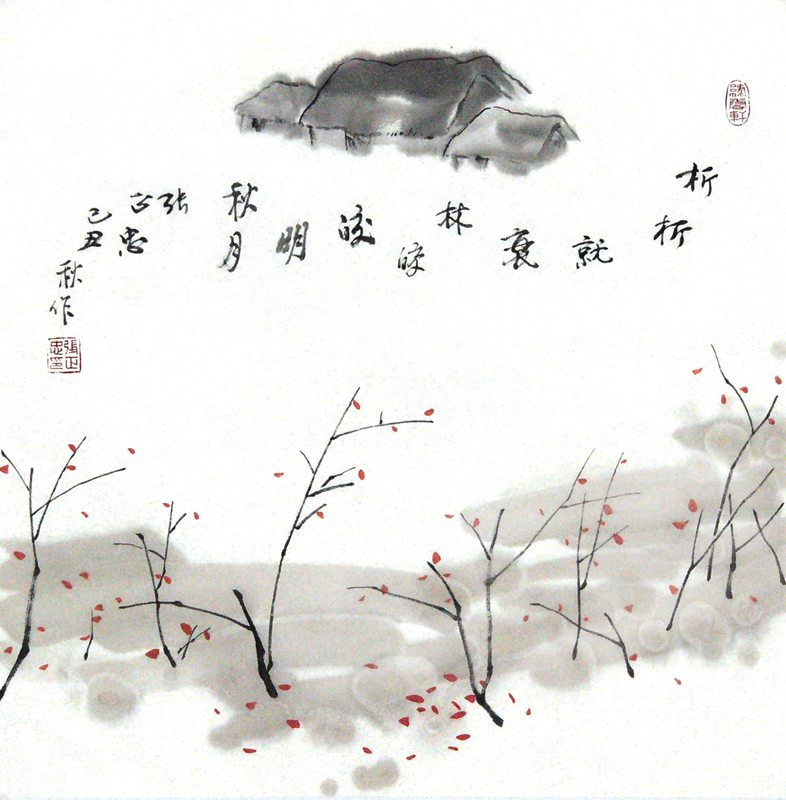 析析就衰林
皎皎明秋月
张正忠
己丑秋作
張正忠印